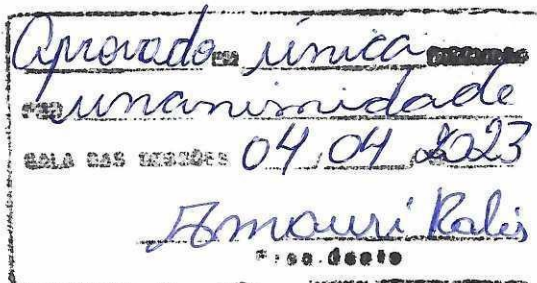 Aprovado EM única DISCUSSÃO
POR unanimidade
SALA DAS SESSÕES 04, 04 2023
Amauri Ralis
Presidente